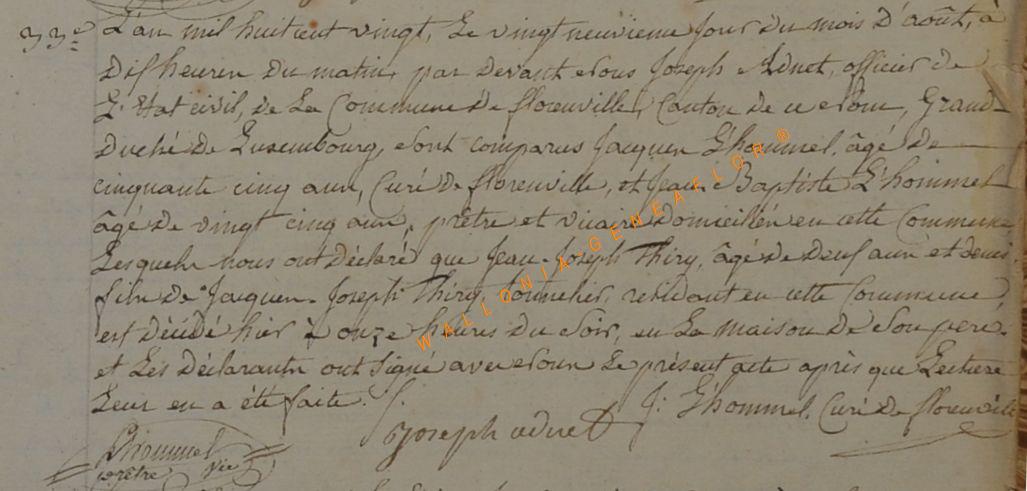 33e L'an mil huit cent vingt, Le vingt neuvieme Jour du mois D'août, à
Dix heures Du matin, par Devant Nous Joseph Adnet, officier de
L'Etat civil, de La Commune De florenville, Canton de ce Nom, Grand-
Duché De Luxembourg, sont comparus Jacques L'hommel, âgé De
cinquante cinq ans, Curé De florenville, et Jean Baptiste L'hommel
âgé de vingt cinq ans, prêtre et vicaire Domiciliés en cette Commune
Lesquels nous ont Déclaré que Jean-Joseph Thiry, âgé De Deux ans et demi
fils De Jacques-Joseph Thiry tonnelier, residant en cette Commune,
est Décédé hier à onze heures Du Soir, en La maison De Son pere.
et Les Déclarants ont Signé avec Nous Le présent acte après que Lecture
Leur en a été faite.
J: L'hommel, Curé De florenville
Joseph adnet
Lhommel
prêtre vic
WALLONIA-GENEAFLOR ®